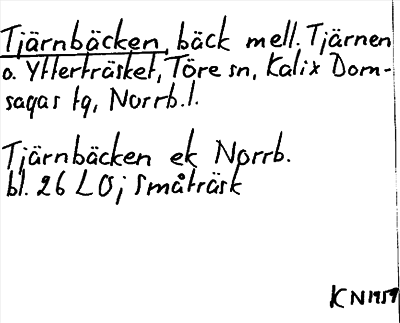 Tjärnbäcken, bäck mell. Tjärnen
o. Ytterträsket, Töre sn, Kalix Dom-
sagas tg, Norrb. l.
Tjärnbäcken ek Norrb.
bl. 26 LO; Småträsk
KN 1959